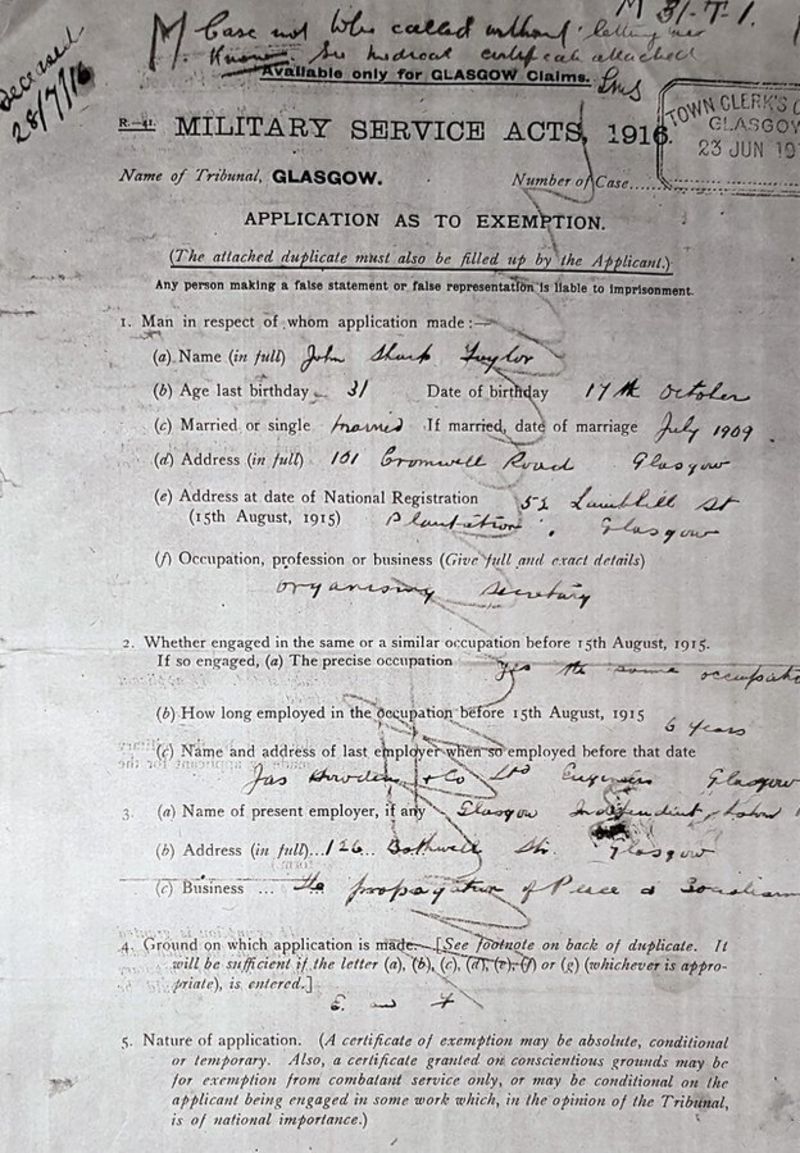 M 31-T-1.
M Case not
called without letting me
Know. See medical certificate attached
Deceased
28/7/16
Available only for GLASGOW Claims.
TOWN CLERK'S
GLASGOW
23 JUN 19
R.—41. MILITARY SERVICE ACTS, 1916.
Name of Tribunal, GLASGOW. Number of Case
APPLICATION AS TO EXEMPTION.
(The attached duplicate must also be filled up by the Applicant.)
Any person making a false statement or false representation is liable to imprisonment.
1. Man in respect of whom application made:—
(a) Name (in full) John Sharp Taylor
(b) Age last birthday 31 Date of birthday 17th October
(c) Married or single married If married, date of marriage July 1909.
(d) Address (in full) 101 Cromwell Road Glasgow
(e) Address at date of National Registration 52 Lambhill St
(15th August, 1915) Plantation, Glasgow
(f) Occupation, profession or business (Give full and exact details)
organising secretary
2. Whether engaged in the same or a similar occupation before 15th August, 1915.
If so engaged, (a) The precise occupation yes the same occupatio
(b) How long employed in the occupation before 15th August, 1915 6 years
(c) Name and address of last employer when so employed before that date
Jas Howden & Co Ltd Engineers Glasgow
3. (a) Name of present employer, if any Glasgow Independent Labour
(b) Address (in full)...126 Bothwell Str. Glasgow
(c) Business ... the propagation of Peace & Socialism
4. Ground on which application is made. [See footnote on back of duplicate. It
will be sufficient if the letter (a), (b), (c), (d), (e), (f) or (g) (whichever is appro-
priate), is entered.]
E. and F
5. Nature of application. (A certificate of exemption may be absolute, conditional
or temporary. Also, a certificate granted on conscientious grounds may be
for exemption from combatant service only, or may be conditional on the
applicant being engaged in some work which, in the opinion of the Tribunal,
is of national importance.)